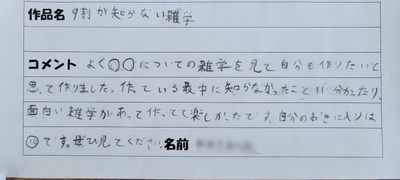 作品名 9割が知らない雑学
コメント よく〇〇についての雑学を見て自分も作りたいと
思って作りました。作っている最中に知らなかったことが分かったり、
面白い雑学があって作ってて楽しかったです。自分のおきに入りは
⑩です。ぜひ見てください。名前